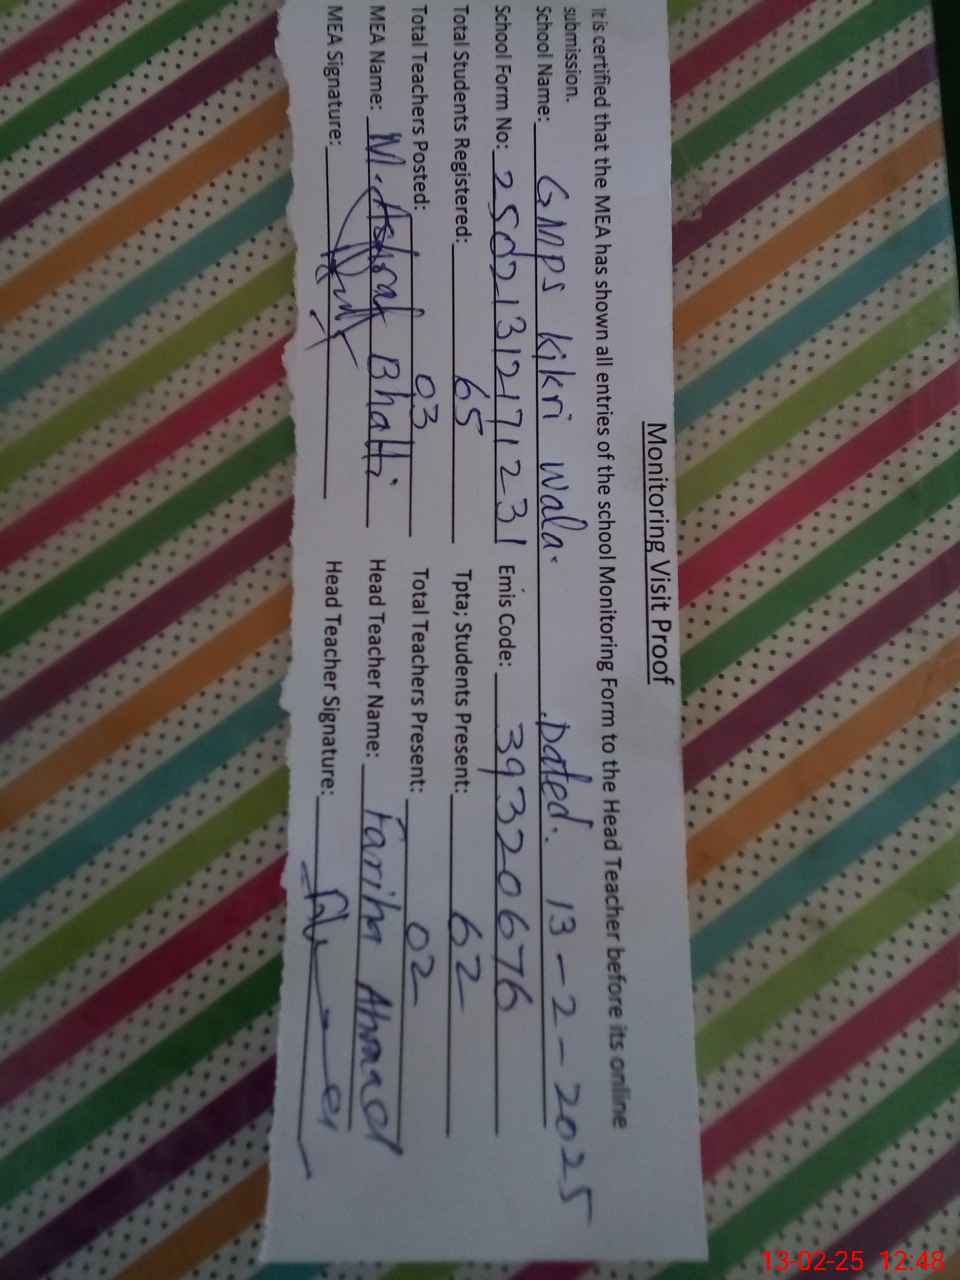 Monitoring Visit Proof
It is certified that the MEA has shown all entries of the school Monitoring Form to the Head Teacher before its online
submission.
School Name: GMPS kikri wala. Dated. 13-2-2025
School Form No: 25021312171231 Emis Code: 39320676
Total Students Registered: 65 Tpta; Students Present: 62
Total Teachers Posted: 03 Total Teachers Present: 02
MEA Name: M. Ashraf Bhatti Head Teacher Name: Fariha Ahmad
MEA Signature: Head Teacher Signature:
13-02-25 12:48